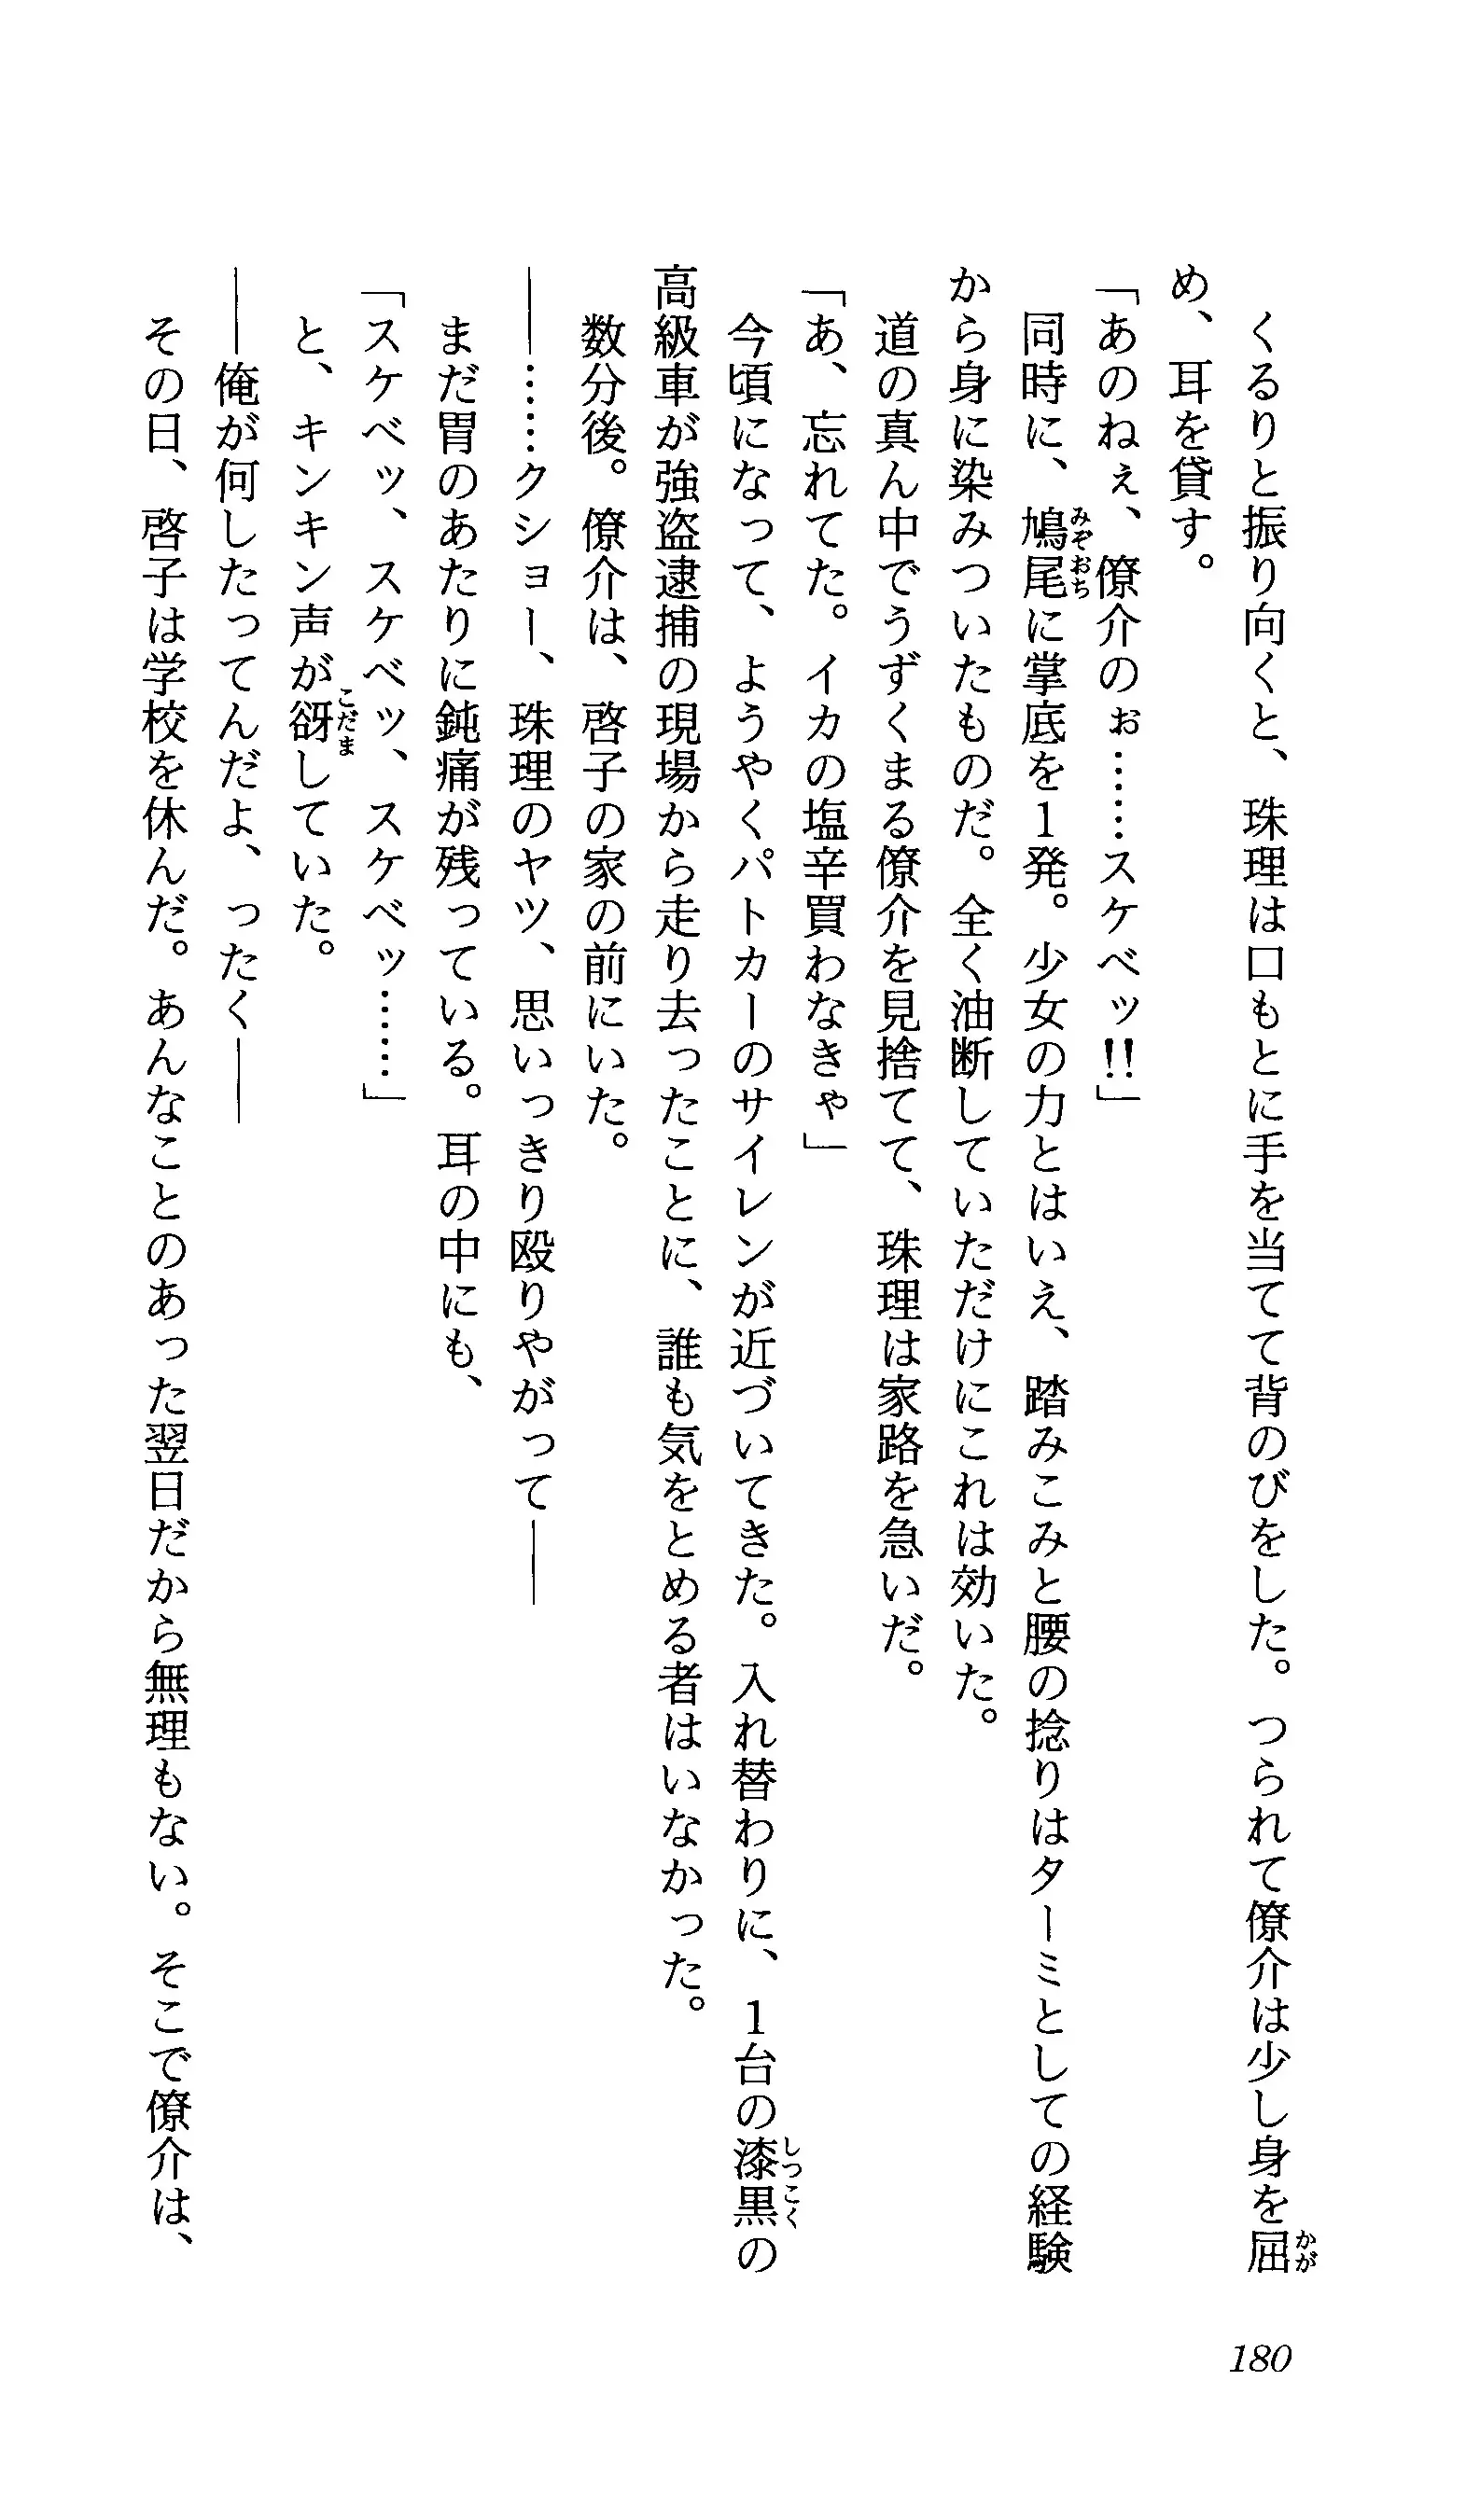 くるりと振り向くと、珠理は口もとに手を当てて背のびをした。つられて僚介は少し身を屈
め、耳を貸す。
「あのねぇ、僚介のぉ……スケベッ!!」
同時に、鳩尾に掌底を1発。少女の力とはいえ、踏みこみと腰の捻りはターミとしての経験
から身に染みついたものだ。全く油断していただけにこれは効いた。
道の真ん中でうずくまる僚介を見捨てて、珠理は家路を急いだ。
「あ、忘れてた。イカの塩辛買わなきゃ」
今頃になって、ようやくパトカーのサイレンが近づいてきた。入れ替わりに、1台の漆黒の
高級車が強盗逮捕の現場から走り去ったことに、誰も気をとめる者はいなかった。
数分後。僚介は、啓子の家の前にいた。
――……クショー、珠理のヤツ、思いっきり殴りやがって――
まだ胃のあたりに鈍痛が残っている。耳の中にも、
「スケベッ、スケベッ、スケベッ……」
と、キンキン声が谺していた。
――俺が何したってんだよ、ったく――
その日、啓子は学校を休んだ。あんなことのあった翌日だから無理もない。そこで僚介は、
かが
みぞおち
しっこく
こだま
180